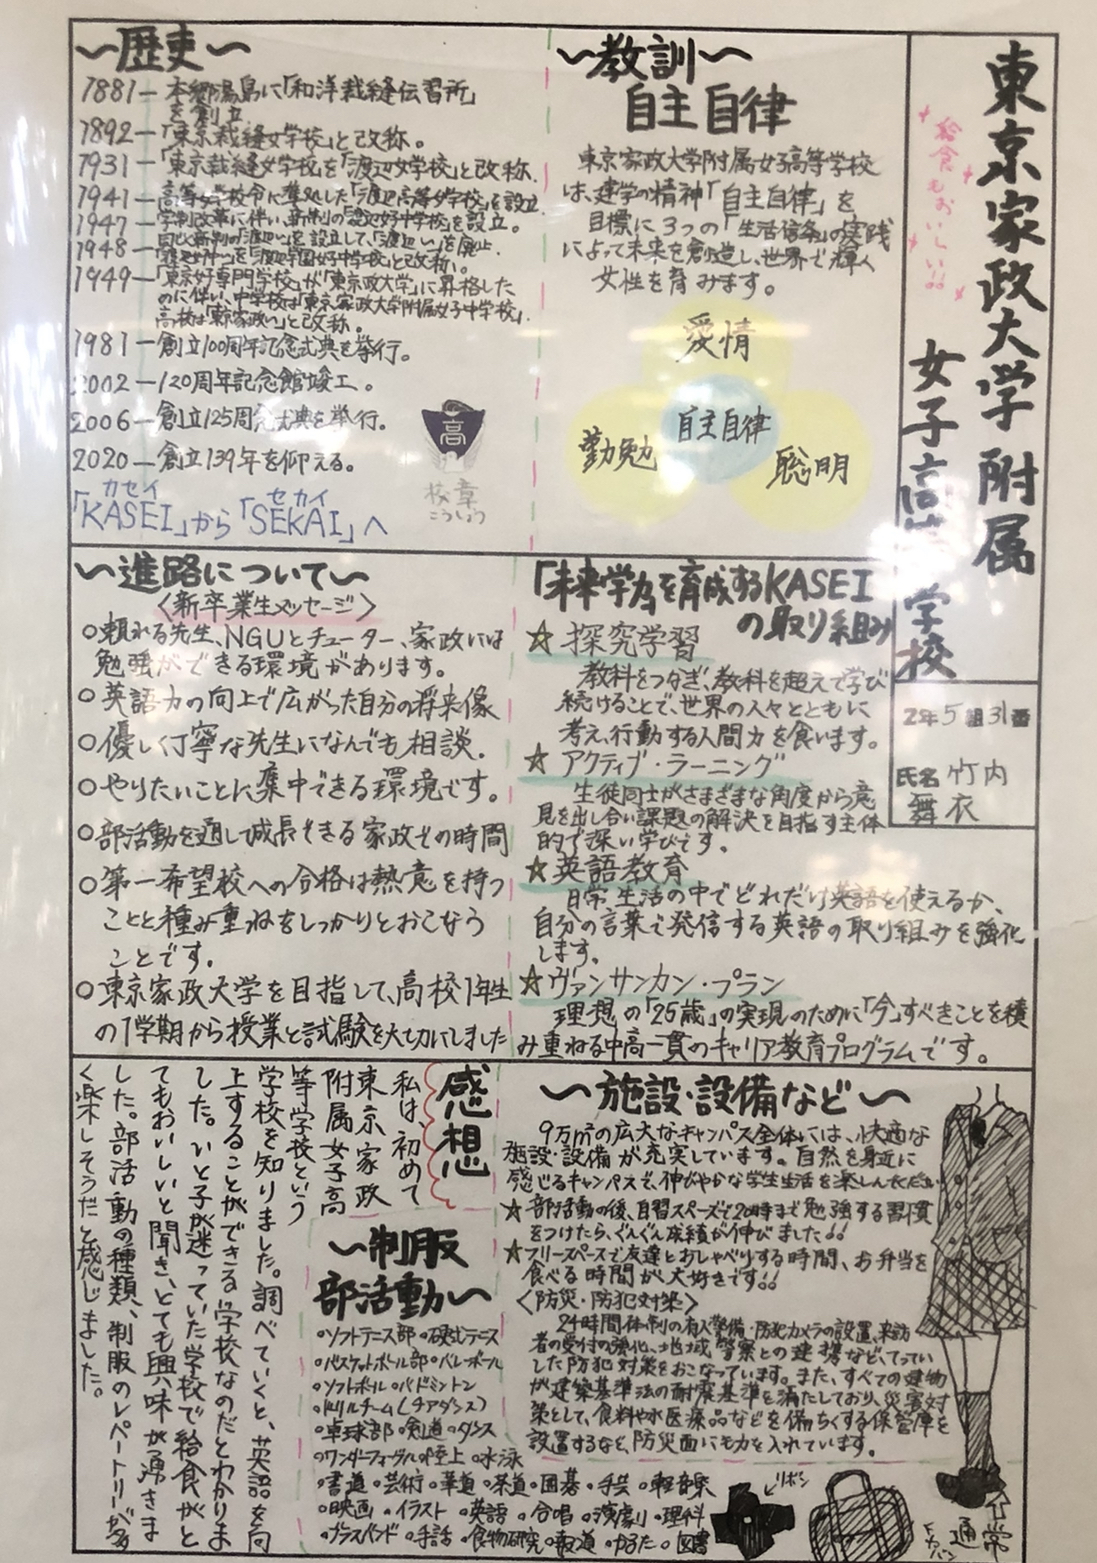 東京家政大学附属
女子高等学校
給食もおいしい!!
2年5組31番
氏名 竹内
舞衣
〜教訓〜
自主自律
東京家政大学附属女子高等学校
は、建学の精神「自主自律」を
目標に3つの「生活信条」の実践
によって未来を創造し、世界で輝く
女性を育みます。
愛情
自主自律
勤勉
聡明
〜歴史〜
1881－本郷湯島に「和洋裁縫伝習所」
を創立
1892－「東京裁縫女学校」と改称。
1931－「東京裁縫女学校」を「渡辺女学校」と改称.
1941－高等女学校令に準処した「渡辺高等女学校」を設立
1947－学制改革に伴い、新制の「渡辺女子中学校」を設立。
1948－
1949－「東京女子専門学校」が「東京家政大学」に昇格した
のに伴い、中学校は「東京家政大学附属女子中学校」.
と改称。
1981－創立100周年記念式典を挙行。
2002－120周年記念館竣工。
2006－創立125周年式典を挙行。
2020－創立139年を仰える。
カセイ セカイ
「KASEI」から「SEKAI」へ
高
校章
こうしょう
「未来学力」を育成するKASEI
の取り組み
☆探究学習
教科をつなぎ、教科を超えて学び
続けることで、世界の人々とともに
考え、行動する人間力を食います。
☆アクティブ・ラーニング
生徒同士がさまざまな角度から意
見を出し合い課題の解決を目指す主体
的で深い学びです。
☆英語教育
日常生活の中でどれだけ英語を使えるか、
自分の言葉で発信する英語の取り組みを強化
します。
☆ヴァンサンカン・プラン
理想の「25歳」の実現のために「今」すべきことを積
み重ねる中高一貫のキャリア教育プログラムです。
〜進路について〜
〈新卒業生メッセージ〉
○頼れる先生、NGUとチューター、家政には
勉強ができる環境があります。
○英語力の向上で広がった自分の将来像
○優しく丁寧な先生になんでも相談.
○やりたいことに集中できる環境です。
○部活動を通して成長できる家政での時間
○第一希望校への合格は熱意を持つ
ことと種み重ねをしっかりとおこなう
ことです。
○東京家政大学を目指して、高校1年生
の1学期から授業と試験を大切にしました
〜施設・設備など〜
9万㎡の広大なキャンパス全体には、快適な
施設・設備が充実しています。自然を身近に
感じるキャンパスで、伸びやかな学生生活を楽しんください
☆部活動の後、自習スペースで20時まで勉強する習慣
をつけたら、ぐんぐん成績が伸びました!!
☆フリースペースで友達とおしゃべりする時間、お弁当を
食べる時間が大好きです!!
〈防災・防犯対策〉
24時間体制の有人警備・防犯カメラの設置、来訪
者の受付の強化、地域警察との連携など、てってい
した防犯対策をおこなっています。また、すべての建物
が建築基準法の耐震基準を満たしており、災害対
策として、食料や水、医療品などを備ちくする保管庫を
設置するなど、防災面にも力を入れています。
リボン
通常
感想
私は、初めて
東京家政
附属女子高
等学校という
学校を知りました。調べていくと、英語を向
上することができる学校なのだとわかりま
した。いと子が迷っていた学校で給食がと
てもおいしいと聞き、とても興味が湧きま
した。部活動の種類、制服のレパートリーが多
く楽しそうだと感じました。
〜制服
部活動〜
○ソフトテニス部 ○硬式テニス
○バスケットボール部 ○バレーボール
○ソフトボール ○バドミントン
○ドリルチーム(チアダンス)
○卓球部 ○剣道 ○ダンス
○ワンダーフォーゲル ○陸上 ○水泳
○書道 ○芸術 ○華道 ○茶道 ○囲碁 ○手芸 ○軽音楽
○映画 ○イラスト ○英語 ○合唱 ○演劇 ○理科
○ブラスバンド ○手話 ○食物研究 ○報道 ○かるた ○図書